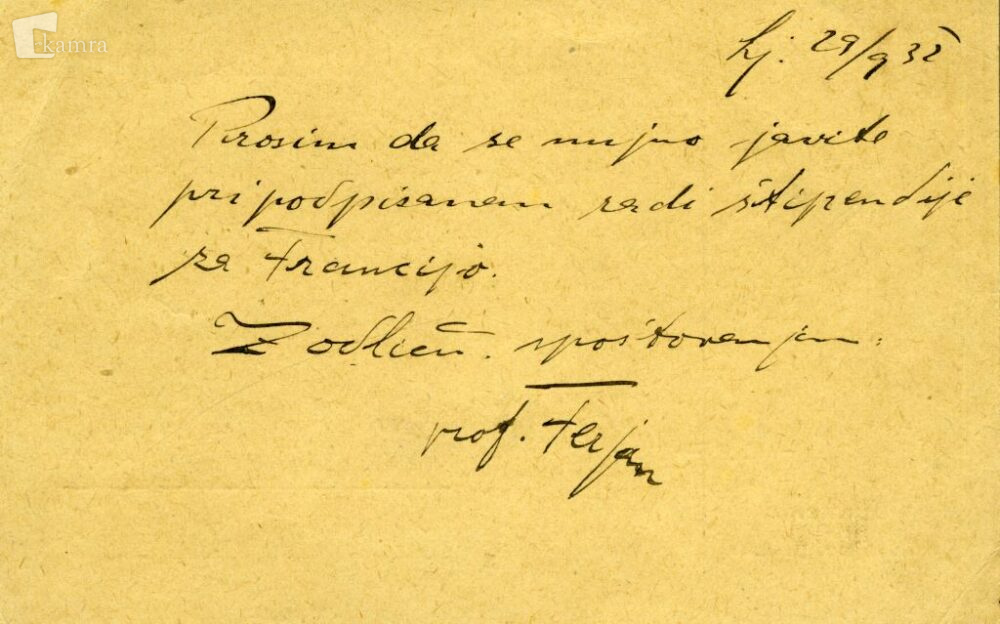 kamra
Lj. 29/9 32
Prosim da se nujno javite
pri podpisanem radi štipendije
za Francijo.
Z odličn. spoštovanjem:
prof. Ferjan